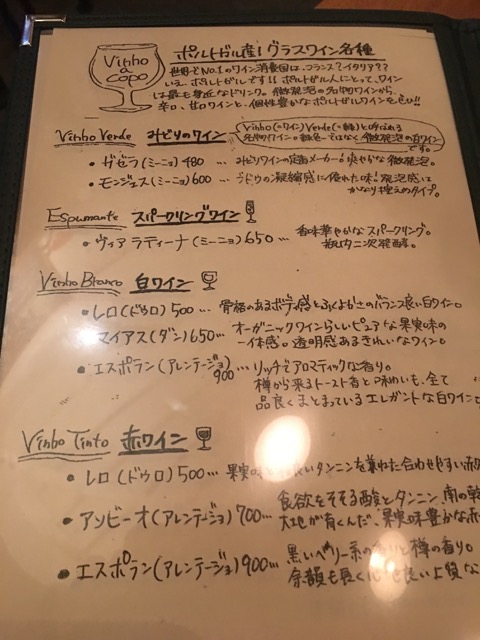 Vinho a copo
ポルトガル産!グラスワイン各種
世界でNo.1のワイン消費国は、フランス?イタリア??
いえ、ポルトガルです!! ポルトガル人にとって、ワイン
は最も身近なドリンク。微発泡の名物ワインから、
辛口、甘口ワインと、個性豊かなポルトガルワインをぜひ!!
Vinho Verde みどりのワイン
Vinho(=ワイン)Verde(=緑)と呼ばれる
名物ワイン。緑色ではなく微発泡の白ワイン
です。
・ガゼラ(ミーニョ)480 … みどりワインの定番メーカー!爽やかな微発泡。
・モンジェス(ミーニョ)600 … ブドウの凝縮感に優れた味!発泡感は
かなり控えめタイプ。
Espumante スパークリングワイン
・ヴィアラティーナ(ミーニョ)650 … 香味華やかなスパークリング。
瓶内二次発酵。
Vinho Branco 白ワイン
・レロ(ドウロ)500 … 骨格のあるボディ感とふくよかさのバランス良い白ワイン。
マイアス(ダン)650 … オーガニックワインらしいピュアな果実味の
一体感。透明感あるきれいなワイン。
・エスポラン(アレンテージョ)
900 … リッチでアロマティックな香り。
樽から来るトースト香と味わいも、全て
品良くまとまっているエレガントな白ワイン
Vinho Tinto 赤ワイン
・レロ(ドウロ)500 … 果実味と良いタンニンを兼ねた合わせやすい赤
・アンビーオ(アレンテージョ)700 … 食欲をそそる酸とタンニン、南の乾
大地が育くんだ、果実味豊かな赤
・エスポラン(アレンテージョ)900 … 黒いベリー系の香りと樽の香り。
余韻も長く心良い上質な